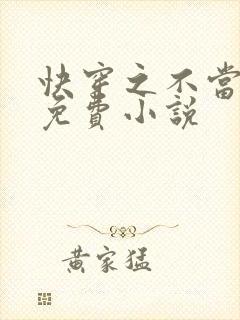 快穿之不當
免費小說
黃家猛